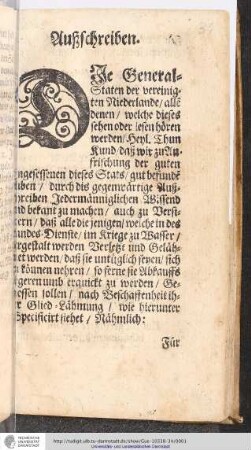 Außschreiben.
Die General-
Staten der vereinig-
ten Niederlande/ alle
denen/ welche dieses
sehen oder lesen hören
werden/ Heyl. Thun
Kund/ daß wir zu An-
frischung der guten
ngesessenen dieses Stats/ gut befunde
aben/ durch die gegenwärtige Auß-
hreiben Jedermänniglichen Wissend
nd bekant zu machen/ auch zu Versi-
ern/ daß alle die jenigen/ welche in des
andes-Dienste/ im Kriege zu Wasser/
rgestalt werden Verletzt und Geläh-
et werden/ daß sie untüglich seyen/ sich
können nehren/ so ferne sie Abkauffs
geren umb erquickt zu werden/ Ge-
essen sollen/ nach Beschaffenheit ih-
r Glied-Lähmung/ wie hierunter
Specificirt stehet/ Nähmlich:
Für